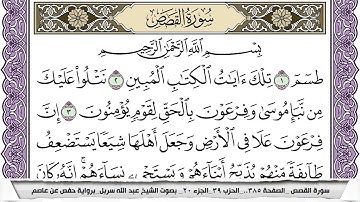 سُورَةُ القَصَصِ
بِسْمِ ٱللَّهِ ٱلرَّحْمَٰنِ ٱلرَّحِيمِ
طسٓمٓ ١ تِلْكَ ءَايَٰتُ ٱلْكِتَٰبِ ٱلْمُبِينِ ٢ نَتْلُوا۟ عَلَيْكَ
مِن نَّبَإِ مُوسَىٰ وَفِرْعَوْنَ بِٱلْحَقِّ لِقَوْمٍ يُؤْمِنُونَ ٣ إِنَّ
فِرْعَوْنَ عَلَا فِى ٱلْأَرْضِ وَجَعَلَ أَهْلَهَا شِيَعًا يَسْتَضْعِفُ
طَآئِفَةً مِّنْهُمْ يُذَبِّحُ أَبْنَآءَهُمْ وَيَسْتَحْىِۦ نِسَآءَهُمْ ۚ إِنَّهُۥ كَانَ
سورة القصص _الصفحة ٣٨٥_ الحزب ٣٩_الجزء ٢٠_ بصوت الشيخ عبد الله سربل_برواية حفص عن عاصم